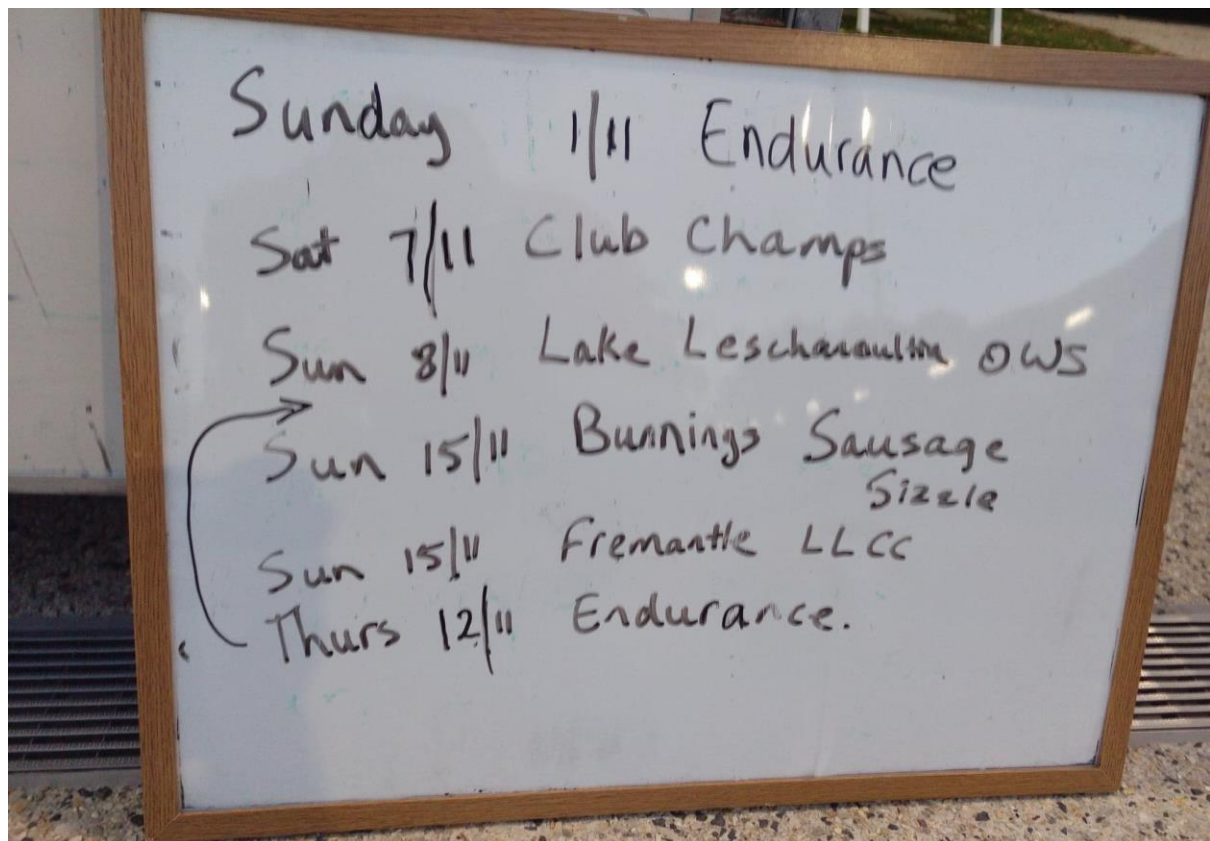 Sunday 1/11 Endurance
Sat 7/11 Club Champs
Sun 8/11 Lake Leschenaultia OWS
Sun 15/11 Bunnings Sausage
Sizzle
Sun 15/11 Fremantle LLCC
Thurs 12/11 Endurance.